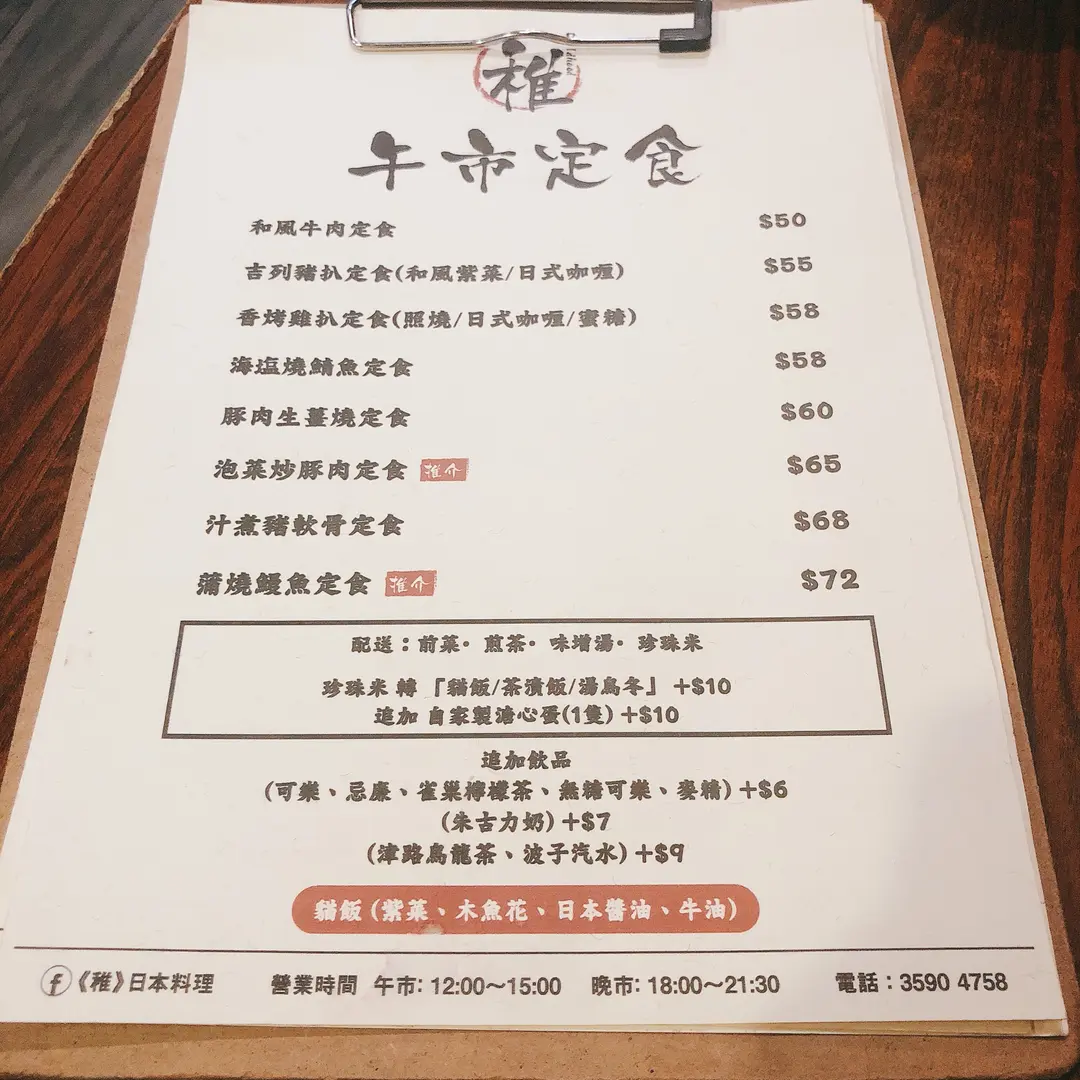 稚
午市定食
和風牛肉定食 $50
吉列豬扒定食(和風紫菜/日式咖喱) $55
香烤雞扒定食(照燒/日式咖喱/蜜糖) $58
海塩燒鯖魚定食 $58
豚肉生薑燒定食 $60
泡菜炒豚肉定食 推介 $65
汁煮豬軟骨定食 $68
蒲燒鰻魚定食 推介 $72
配送：前菜· 煎茶· 味增湯· 珍珠米
珍珠米 轉 「貓飯/茶漬飯/湯烏冬」 +$10
追加 自家製溏心蛋(1隻) +$10
追加飲品
(可樂、忌廉、雀巢檸檬茶、無糖可樂、麥精) +$6
(朱古力奶) +$7
(津路烏龍茶、波子汽水) +$9
貓飯 (紫菜、木魚花、日本醬油、牛油)
f 《稚》日本料理 營業時間 午市: 12:00～15:00 晚市: 18:00～21:30 電話：3590 4758